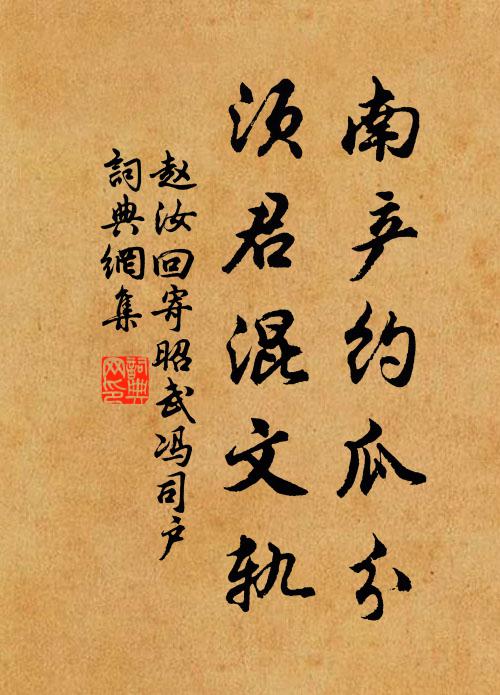 南产约瓜分
须君混文轨
赵汝回寄昭武冯司户
詞典網集
詞典网印